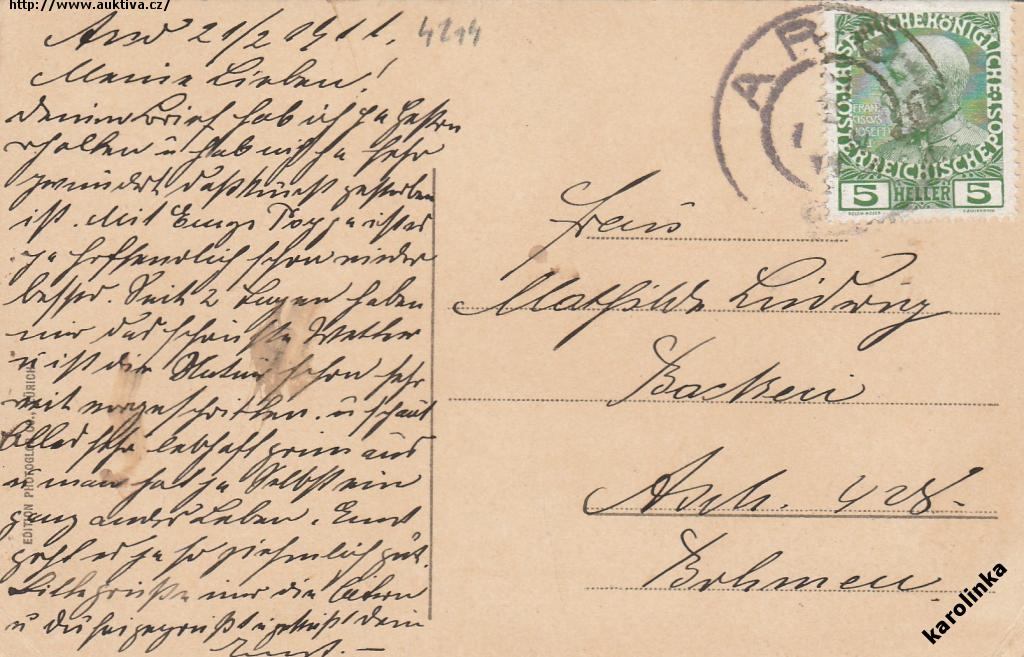 http://www.auktiva.cz/
Arco 21/2 1911.
4214
Meine Lieben!
deinen Brief hab ich ja gestern
erhalten u hab mich ja sehr
gewundert daß gestorben
ist. Mit Poppa ist es
ja hoffendlich schon wieder
besser. Seit 2 Tagen haben
wir das schönste Wetter
u ist die Natur schon sehr
weit vorgeschritten. u schaut
alles sehr lebhaft grün aus
u man hat ja selbst ein
ganz andres Leben.
geht es ja so ziehmlich gut.
Bitte grüße mir die Eltern
u du sei gegrüßt u geküßt dein
Ernst. —
EDITION PHOTOGLOB ZÜRICH
ARCO
KAISERLICHEKÖNIGLICHE POST
ÖSTERREICHISCHE POST
FRAN
CISCUS
JOSEPH I
5 HELLER 5
Frau
Mathilde Ludwig
Asch. 428.
Bohmen
karolinka